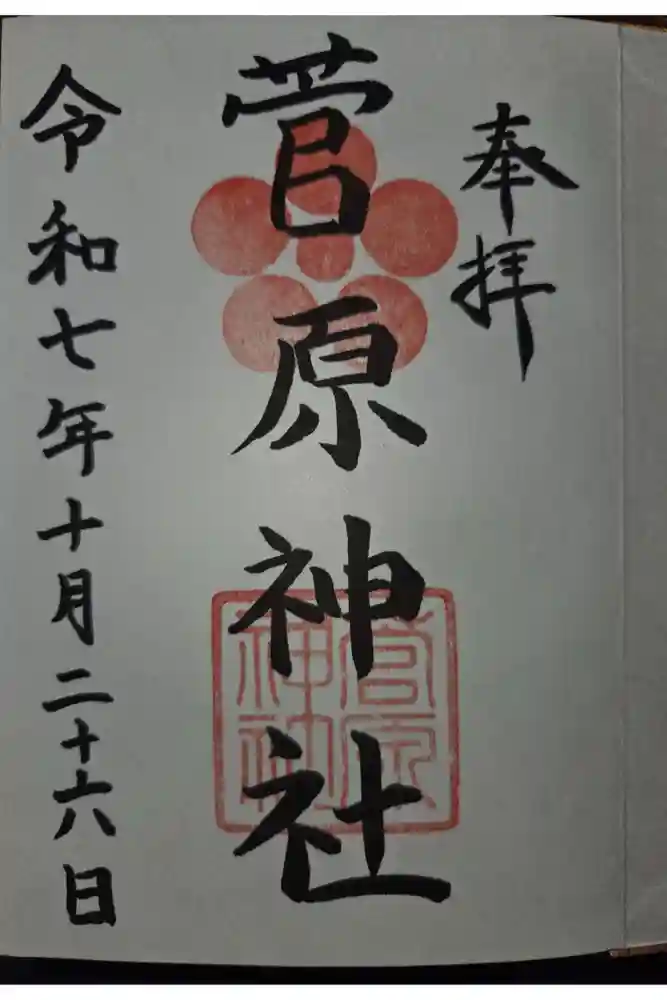 奉拝
菅原神社
菅原
神社
令和七年十月二十六日